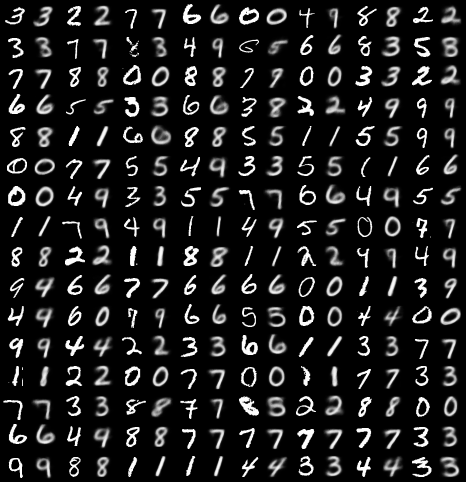 3 3 2 2 7 7 6 6 0 0 4 9 8 8 2 2
3 3 7 7 8 3 4 9 6 5 6 6 8 3 5 8
7 7 8 8 0 0 8 8 7 9 0 0 3 3 2 2
6 6 5 5 3 3 6 6 3 8 2 2 4 9 9 9
8 8 1 1 6 6 8 8 5 5 1 1 5 5 9 9
0 0 7 7 5 5 4 9 3 3 5 5 1 1 6 6
0 0 4 9 3 3 5 5 7 7 6 6 4 9 5 5
1 1 7 9 4 9 1 1 4 9 5 5 0 0 7 7
8 8 2 2 1 1 8 8 1 1 2 2 9 9 4 9
9 4 6 6 7 7 6 6 6 6 0 0 1 1 3 9
4 9 6 0 7 9 6 6 5 5 0 0 4 4 0 0
9 9 4 4 2 2 3 3 6 6 1 1 3 3 7 7
1 1 2 2 0 0 7 7 0 0 1 1 7 7 3 3
7 7 3 3 8 8 7 7 8 5 2 2 8 8 0 0
6 6 4 9 8 8 7 7 7 7 7 7 7 7 3 3
9 9 8 8 1 1 1 1 4 4 3 3 4 4 3 3